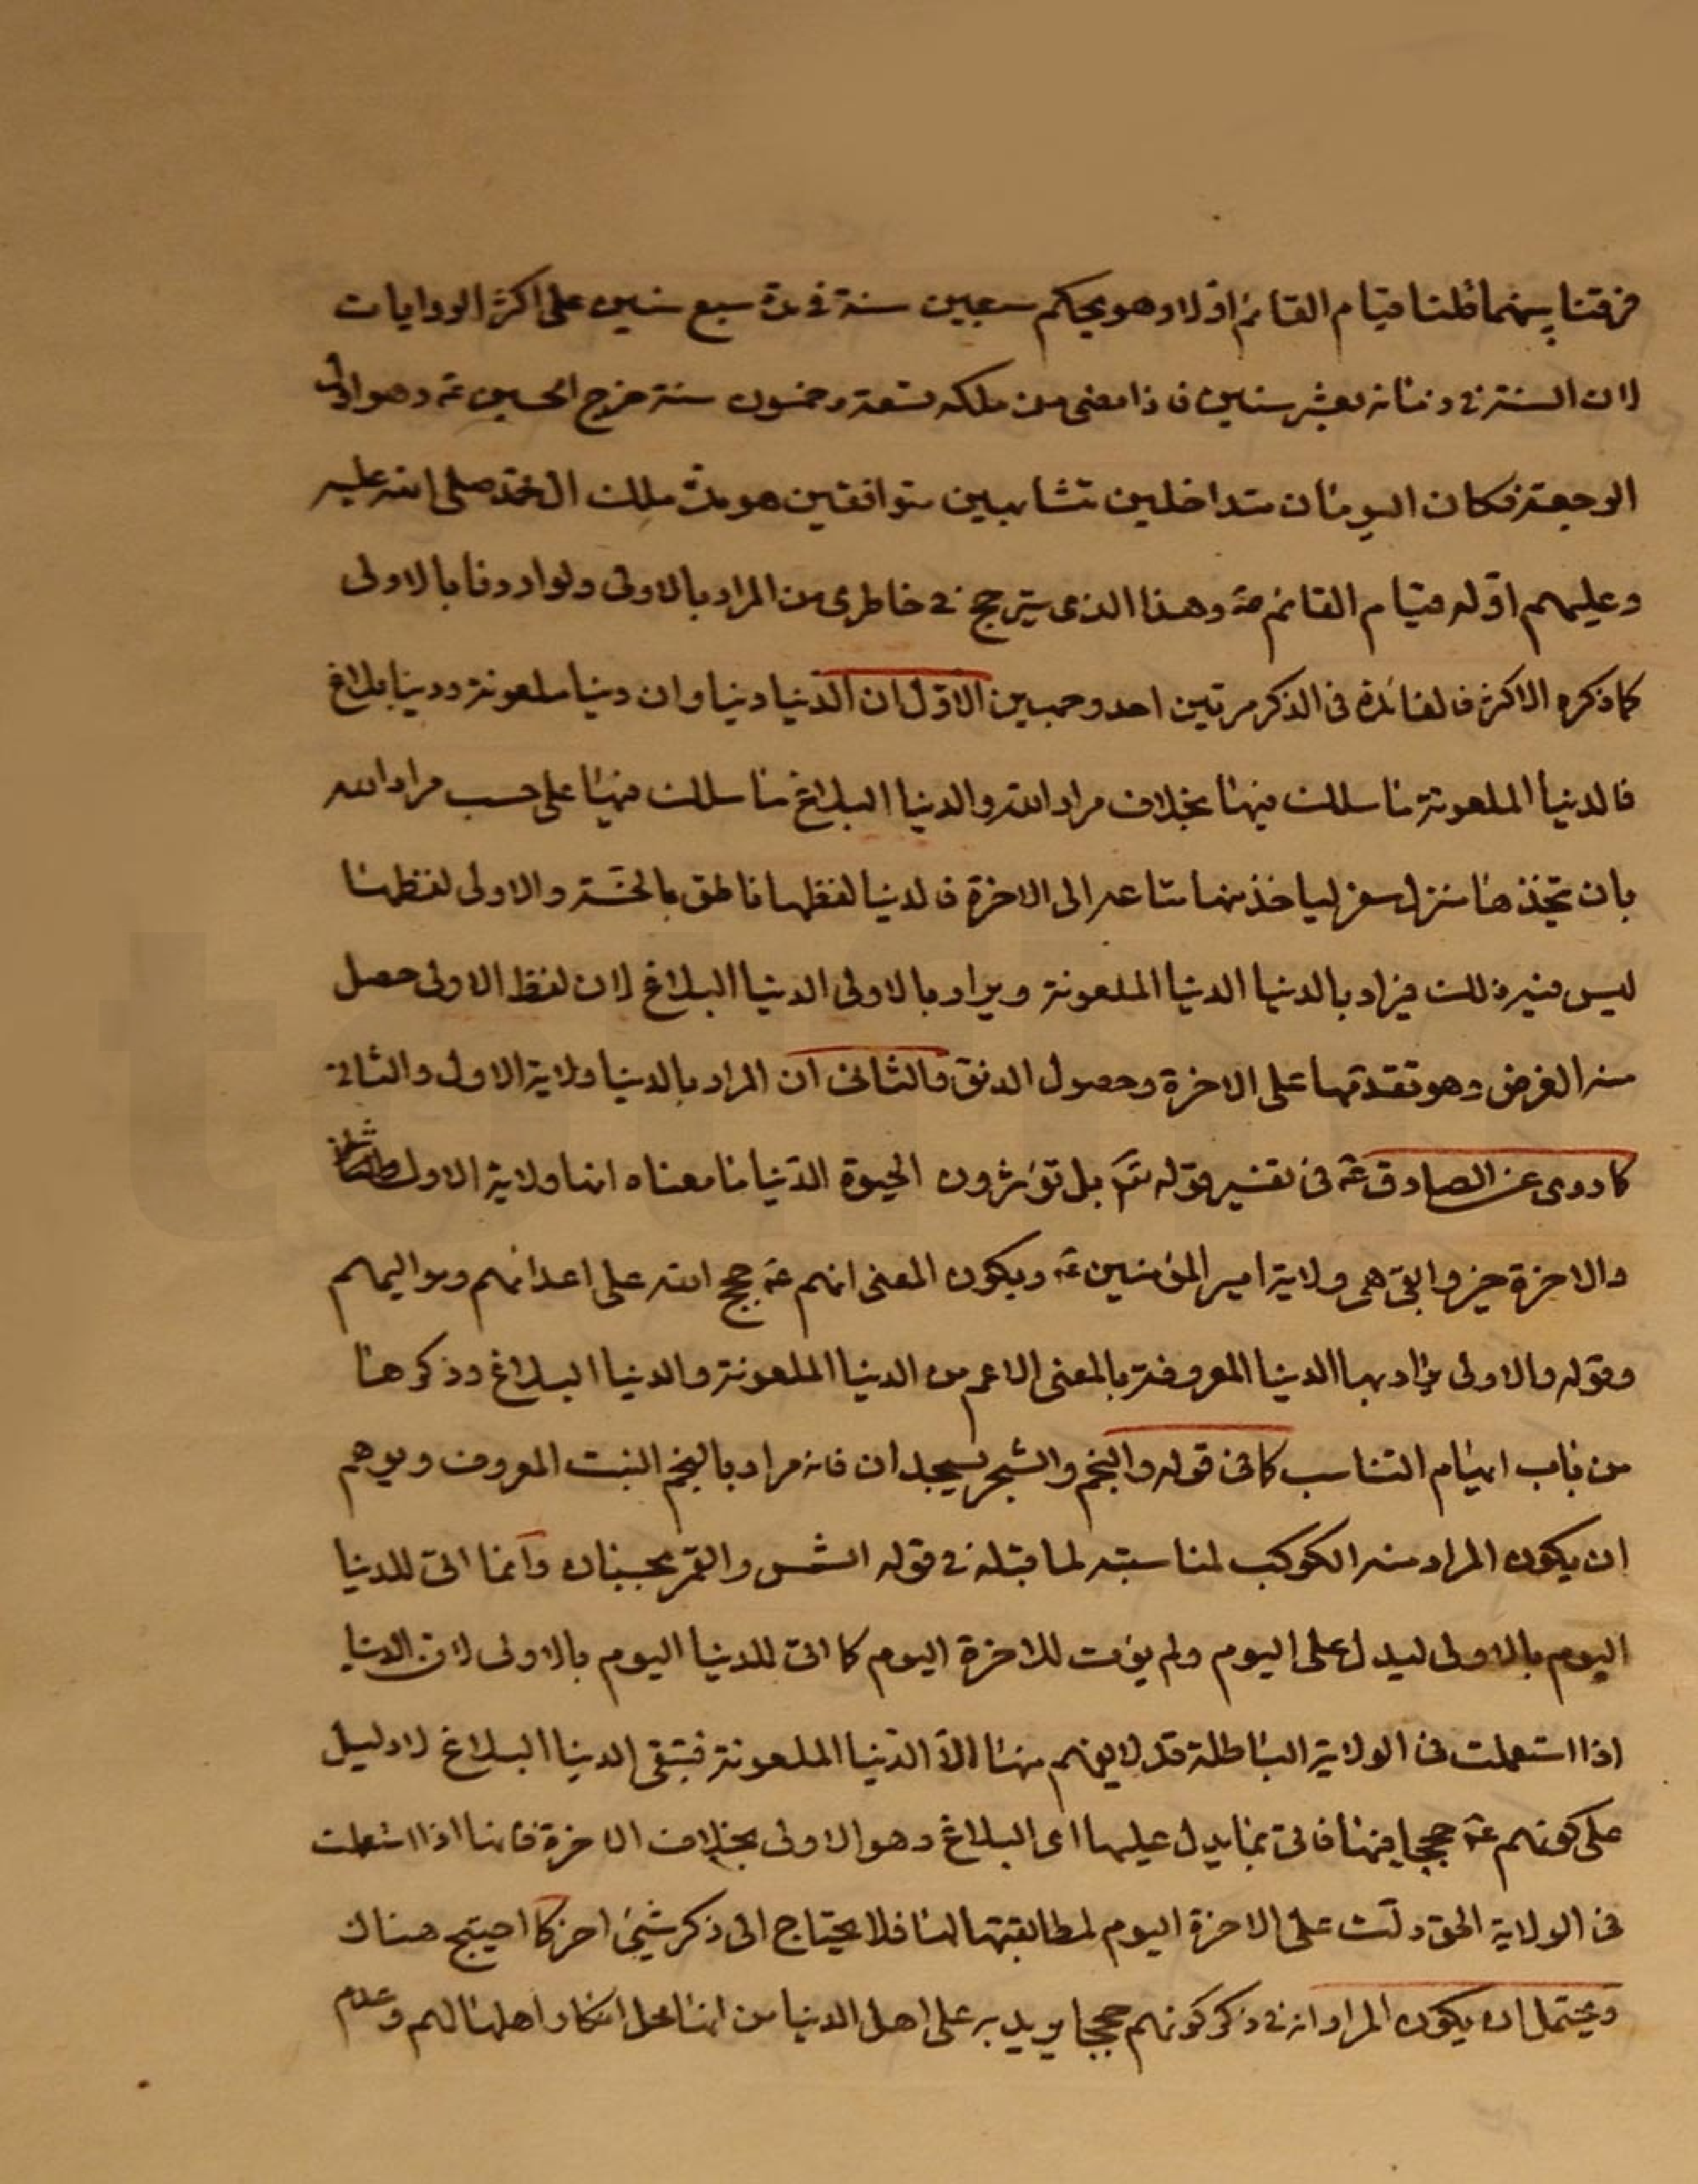 فرقتنا بينهما قلنا قيام القائم اولا وهو يحكم سبعين سنة في مدة سبع سنين على اكثر الروايات
لان السنة في زمانه بعشر سنين فاذا مضى من ملكه تسعة وخمسون سنة خرج الحسين عة وهو اول
الرجعة فكان اليومان متداخلين متشابهين متوافقين هو مدة ملك ال محمد صلى الله عليه
وعليهم اوله قيام القائم عة وهذا الذى يترجح في خاطرى من المراد بالاولى ولو اردنا بالاولى
كما ذكره الاكثر فالفائدة في الذكر مرتين احد وجهين الاول ان الدنيا دنياوان دنيا ملعونة ودنيا بلاغ
فالدنيا الملعونة ما سلك فيها بخلاف مراد الله والدنيا البلاغ ما سلك فيها على حسب مراد الله
بان تتخذها منزل سفر لياخذ منها متاعه الى الاخرة فالدنيا لفظها ناطق بالخسّة والاولى لفظها
ليس فيه ذلك فيراد بالدنيا الدنيا الملعونة ويراد بالاولى الدنيا البلاغ لان لفظ الاولى حصل
منه الغرض وهو تقدمها على الاخرة وحصول الدنو والثانى ان المراد بالدنيا ولاية الاول والثانى
كما روى عن الصادق عة في تفسير قوله تع بل تؤثرون الحيوة الدنيا ما معناه انها ولاية الاول والثانى
والاخرة خير وابقى هى ولاية امير المؤمنين عة ويكون المعنى انهم عة حجج الله على اعدائهم ومواليهم
وقوله والاولى يراد بها الدنيا المعروفة بالمعنى الاعم من الدنيا الملعونة والدنيا البلاغ وذكرها
من باب ايهام التناسب كما في قوله والنجم والشجر يسجدان فانه مراد بالنجم النبت المعروف ويوهم
ان يكون المراد منه الكوكب لمناسبته لما قبله في قوله الشمس والقمر بحسبان وانما اتى للدنيا
اليوم بالاولى ليدل على اليوم ولم يؤت للاخرة اليوم كما اتى للدنيا اليوم بالاولى لان الدنيا
اذا استعملت في الولاية الباطلة قد لا يفهم منها الا الدنيا الملعونة فتبقى الدنيا البلاغ لا دليل
على كونهم عة حججا فيها فاتى بما يدل عليها اى البلاغ وهو الاولى بخلاف الاخرة فانها اذا استعملت
في الولاية الحق دلت على الاخرة اليوم لمطابقتها لها فلا يحتاج الى ذكر شيئ اخر كما احتيج هناك
ويحتمل ان يكون المراد انه في ذكر كونهم حججا يريد به على اهل الدنيا من انها محل انكار اهلها لهم وعدم